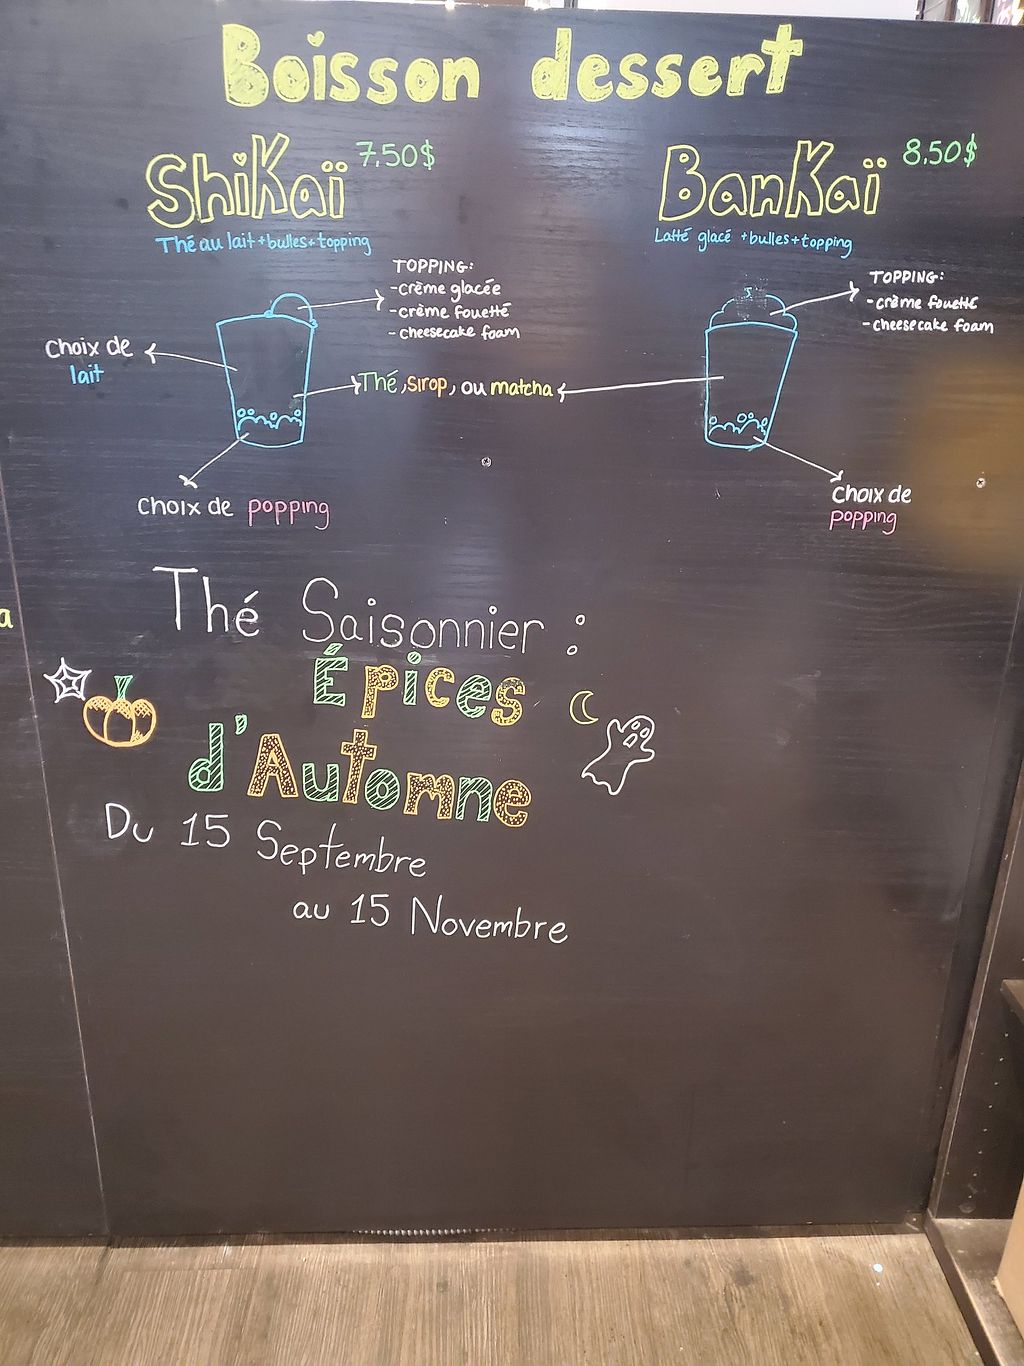 Boisson dessert
Shikaï 7,50$
Thé au lait+bulles+topping
TOPPING:
-crème glacée
-crème fouetté
-cheesecake foam
Choix de
lait
Thé, sirop, ou matcha
Choix de popping
BanKaï 8,50$
Latté glacé +bulles+topping
TOPPING:
-crème fouetté
-cheesecake foam
Choix de
popping
Thé Saisonnier :
Épices
d'Automne
Du 15 Septembre
au 15 Novembre
a